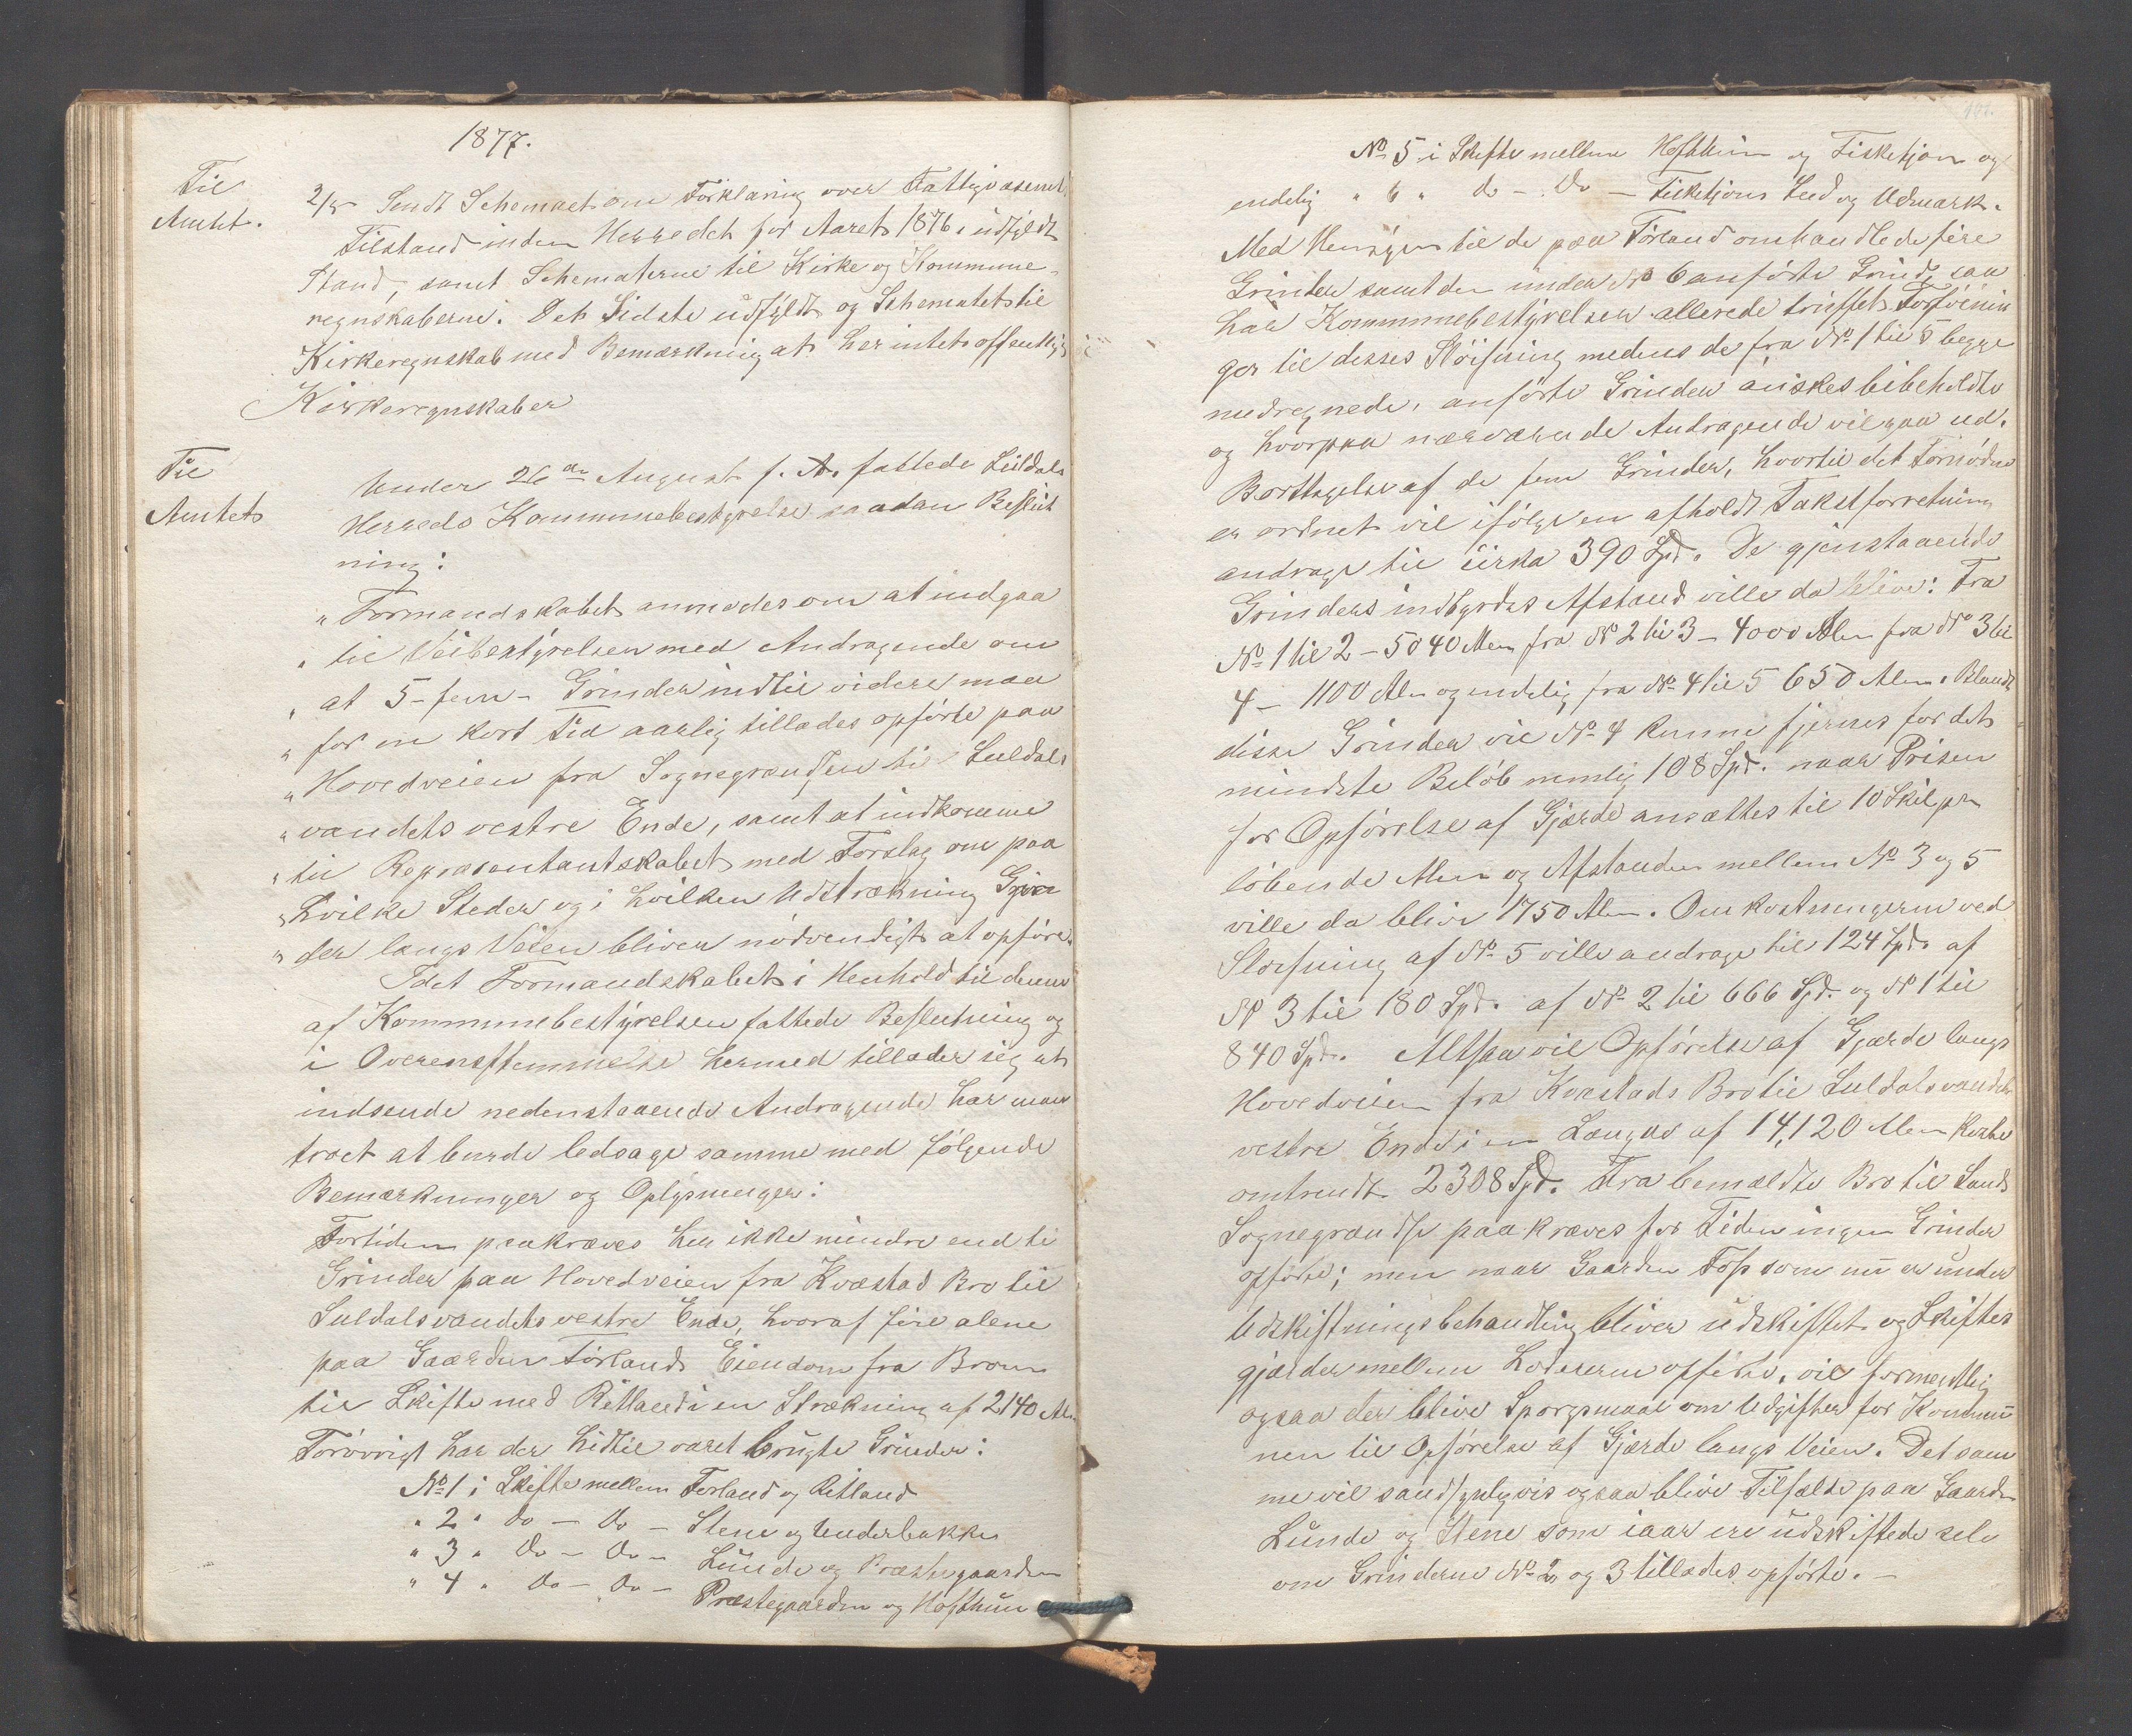 1877.
Til
Amtet.
2/5 Sendt Schemaet om Forklaring over Fattigvæsenets
Tilstand inden Herredet for Aaret 1876 i udfyldt
Stand, samt Schematerne til Kirke og Kommune-
regnskaberne. Det Sidste udfyldt og Schematet til
Kirkeregnskab med Bemærkning at her intet offentligt
Kirkeregnskaber
Til
Amtets
Under 26de August f. A. fattede Suldals
Herreds Kommunebestyrelse saadan Beslut
ning:
"Formandskabet anmodes om at indgaa
" til Veibestyrelsen med Andragende om
" at 5-fem- Grinder indtil videre maa
" for en kort Tid aarlig tillades opførte paa
" Hovedveien fra Sognegrændsen til Suldals
" vandets vestre Ende, samt at indkomme
" til Repræsentantskabet med Forslag om paa
" hvilke Steder og i hvilken Udstrækning Gjær
" der langs Veien bliver nødvendigt at opføre.
Idet Formandskabet i Henhold til denne
af Kommunebestyrelsen fattede Beslutning og
i Overensstemmelse hermed tillader sig at
indsende nedenstaaende Andragende har man
troet at burde ledsage samme med følgende
Bemærkninger og Oplysninger:
Fortiden paakræves her ikke mindre end ti
Grinder paa Hovedveien fra Kvæstad Bro til
Suldalsvandets vestre Ende, hvoraf fire alene
paa Gaarden Førlands Eiendom fra Broen
til Skifte med Ritland i en Strækning af 2140 Al.
Forøvrigt har der hidtil været brugte Grinder:
No 1 i Skifte mellem Førland og Ritland
" 2 " Do - Do - Stene og Underbakke
" 3 " Do - Do - Lunde og Præstegaarden
" 4 " Do - Do - Præstegaarden og Hofthun
No 5 i Skifte mellem Hofthun og Fisketjøn og
endelig " 6 " do - Do - Fisketjøns Led og Udmark.
Med Hensyn til de paa Førland omhandlede fire
Grinder samt den under No 6 anførte Grind, saa
har Kommunebestyrelsen allerede truffet Forføinin
ger til desses Sløifning medens de fra No 1 til 5 begge
medregnede, anførte Grinder ønskes bibeholdte
og hvorpaa nærværende Andragende vil gaa ud.
Borttagelse af de fem Grinder, hvortil det Fornødne
er ordnet vil ifølge en afholdt Takstforretning
andrage til cirka 390 Spd. De gjenstaaende
Grinders indbyrdes Afstand ville da blive: Fra
No 1 til 2 - 5040 Alen fra No 2 til 3 - 4000 Alen fra No 3 til
4 - 1100 Alen og endelig fra No 4 til 5 650 Alen. Blandt
disse Grinder vil No 4 kunne fjernes for det
mindste Beløb nemlig 108 Spd. naar Prisen
for Opførelse af Gjærde ansættes til 10 Skil pr
løbende Alen og Afstanden mellem No 3 og 5
ville da blive 1750 Alen. Omkostningerne ved
Sløifning af No 5 ville andrage til 124 Spd. af
No 3 til 180 Spd. af No 2 til 666 Spd. og No 1 til
840 Spd. Altsaa vil Opførelse af Gjærde langs
Hovedveien fra Kvæstads Bro til Suldalsvandets
vestre Ende i en Længde af 14,120 Alen koste
omtrendt 2308 Spd. Fra bemældte Bro til Sands
Sognegrændse paakræves for Tiden ingen Grinder
opførte; men naar Gaarden Foss som nu er under
Udskiftningsbehandling bliver udskiftet og Skiftes
gjærder mellem Lodeierne opførte, vil formentlig
ogsaa der blive Spørgsmaal om Udgifter for Kommu
nen til Opførelse af Gjærde langs Veien. Det sam
me vil sandsynligvis ogsaa blive Tilfælde paa Gaarden
Lunde og Stene som iaar ere udskiftede selv
om Grinderne No 2 og 3 tillades opførte. -